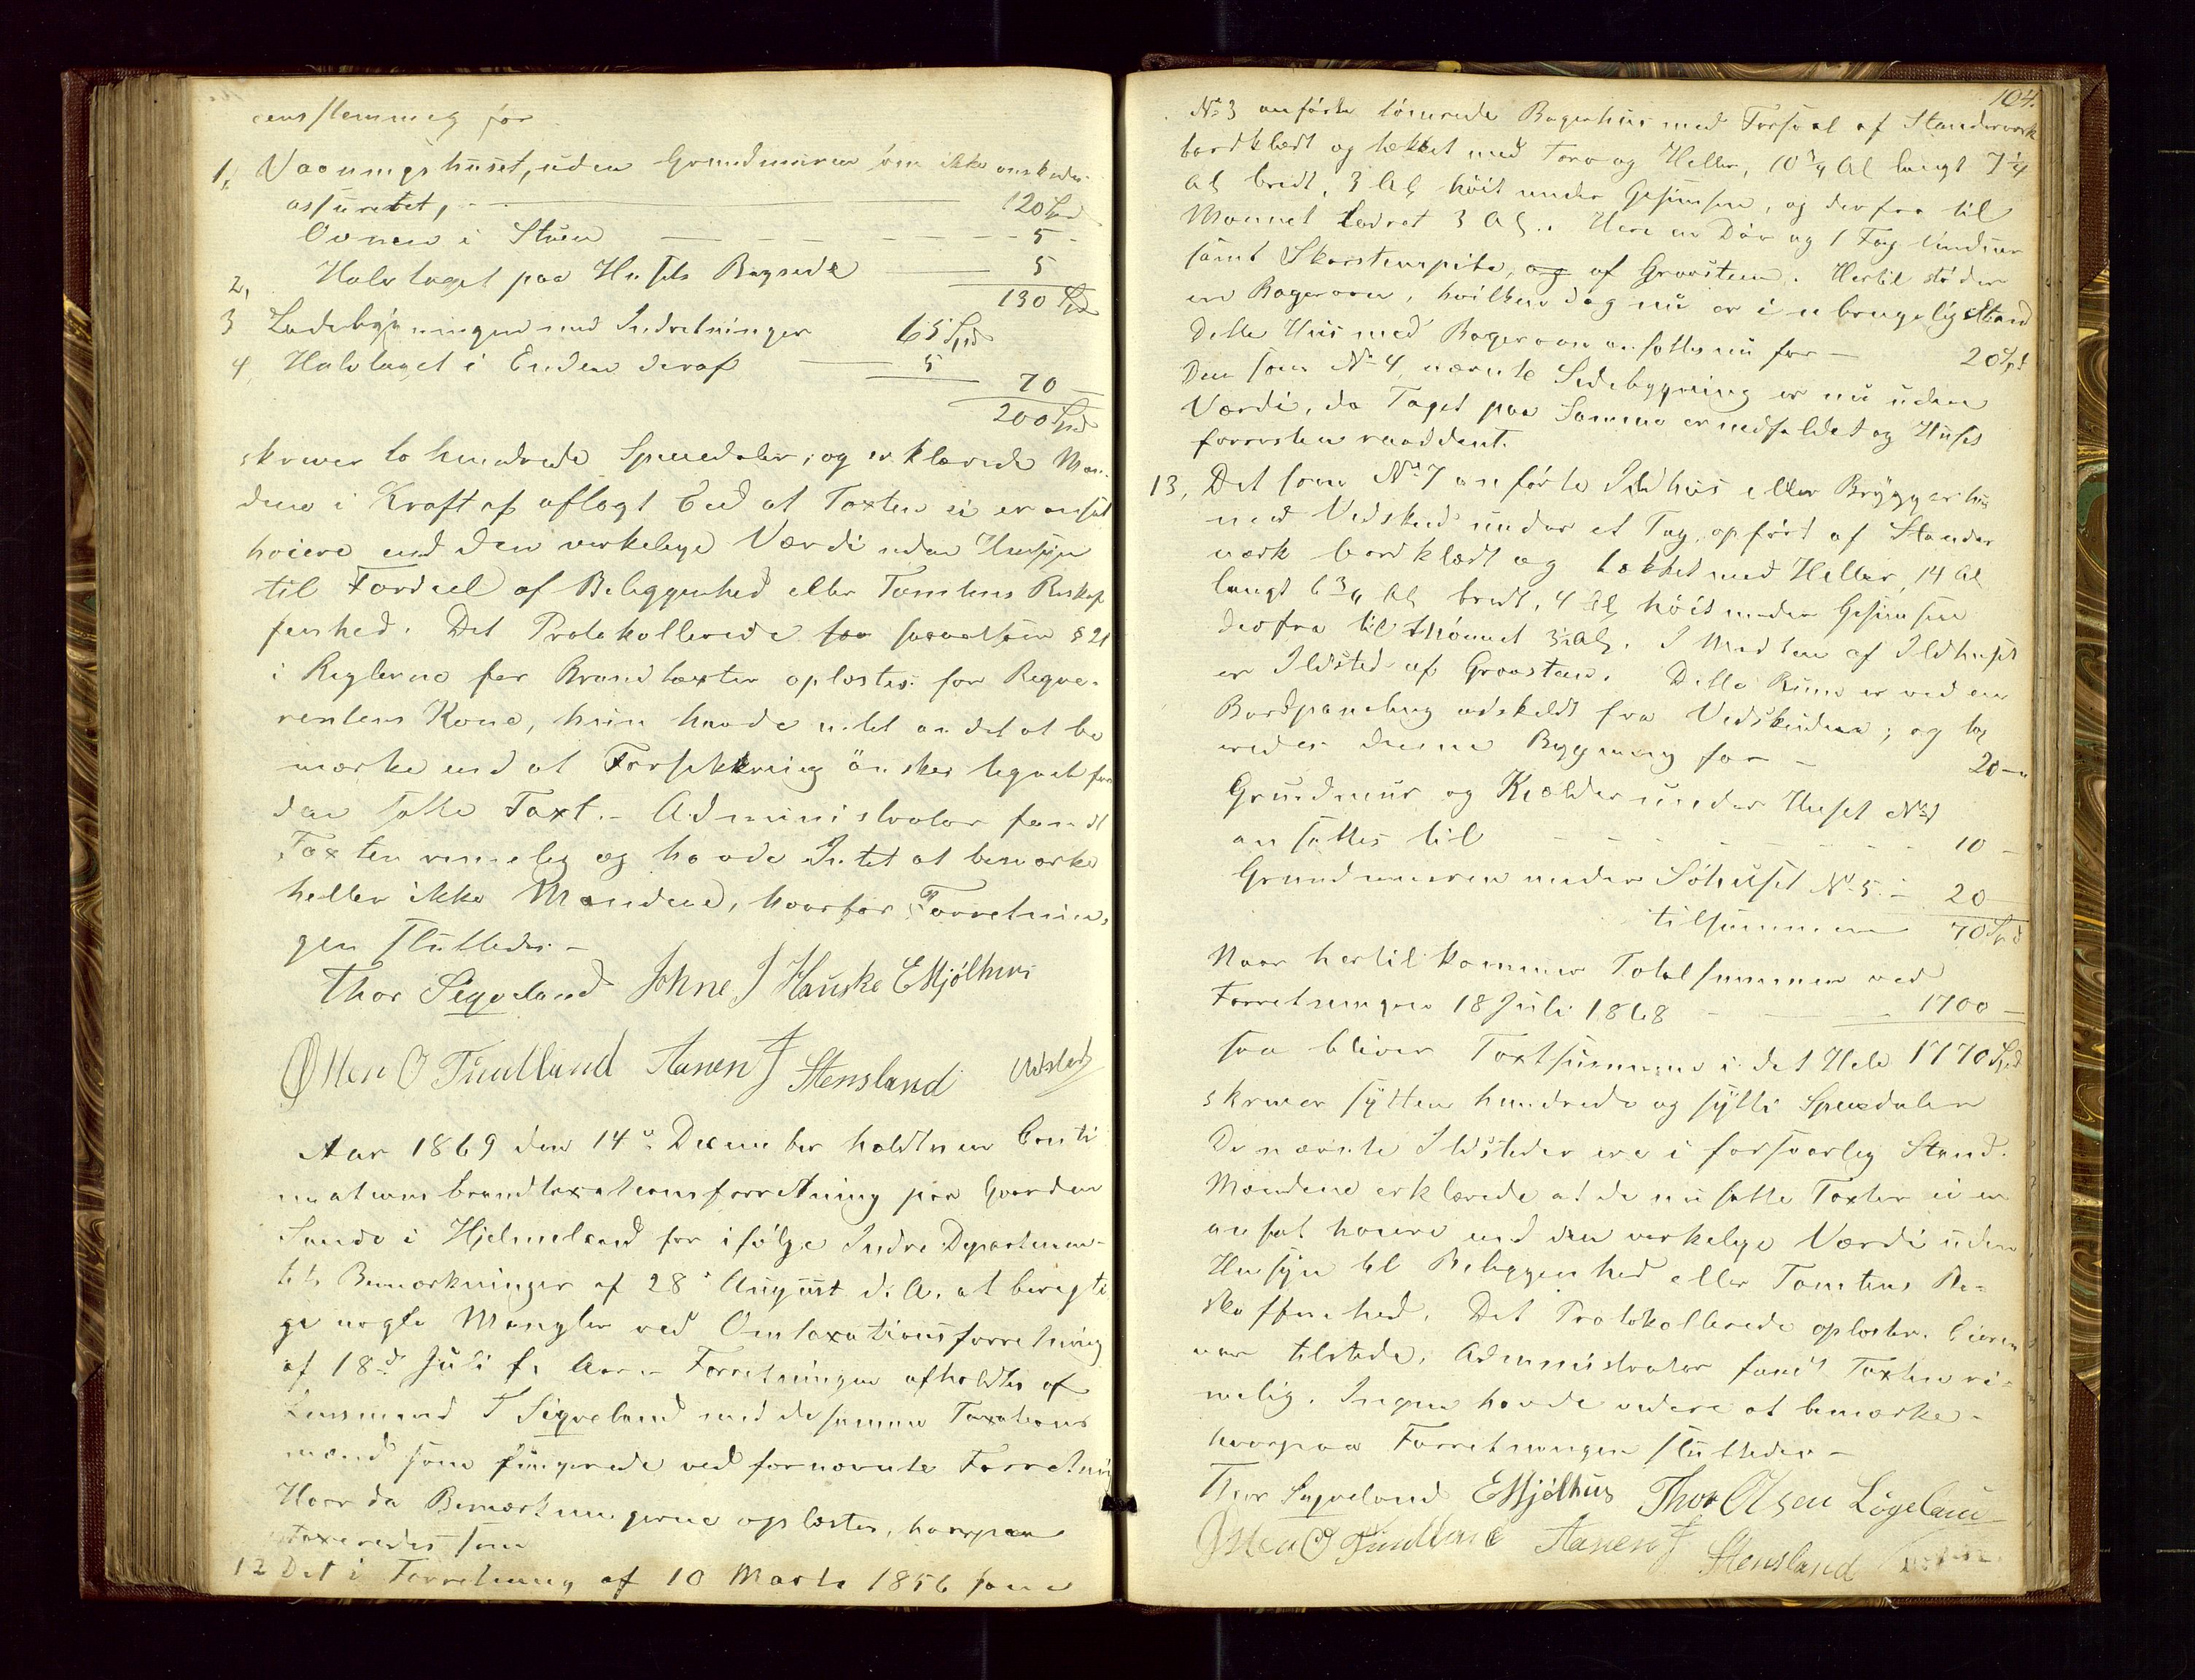 eenstemmig for
1, Vaaningshuset, uden Grundmuren som ikke onskedes
assuretet, — 120 Spd
Ovnen i Stuen — 5 -
2, Halvtaget paa Husets Bagside — 5
130 Spd
3 Ladebygningen med Indretninger 65 Spd
4, Halvtaget i Enden deraf — 5
70 —
200 Spd
skriver to hundrede Speciedaler, og erklærede Mæn-
dene i Kraft af aflagt Eed at Taxten ei er ansat
høiere end den verkelige Værdi uden Hensyn
til Fordeel af Beliggenhed eller Tomtens Beskaf
fenhed. Det Protokollerede saavelsom § 21
i Reglerne for Brandtaxter oplæstes for Reqvi-
rentens Kone, hun havde intet andet at be
mærke end at Forsikkring önskes tegnet for
den satte Taxt. - Administrator fandt
Taxten rimelig og havde Intet at bemærke
heller ikke Mændene, hvorfor Forretnin-
gen sluttedes. -
Thor Siqveland Johne J Hauske E Mjölhus
Østen O Tindland Aanen J Stensland Udsted
Aar 1869 den 14de December holdtes en Conti
nuations brandtaxationsforretning paa Gaarden
Sande i Hjelmeland for ifølge Indre Departemen-
tets Bemærkninger af 28de August d. A. at berigti
ge nogle Mangler ved Omtaxationsforretning
af 18de Juli f. Aar. - Forretningen afholdtes af
Lensmand T Siqveland med de samme Taxations
mænd som fungerede ved fornævnte Forretning
Hvor da Bemærkningerne oplæstes, hvorpaa
taxeredes som
12 Det i Forretning af 10 Marts 1856 som
104.
No 3 anførte tömrede Bagerhus med Forsval af Standerværk
bordklædt og tækket med Torv og Heller, 10 3/4 Al langt 7 1/4
Al bredt, 3 Al höit under Gesimsen, og derfra til
Mønnet lodret 3 Al. Her er Dör og 1 Fag Vinduer
samt Skorstenspibe, og af Graasteen. Hertil stöder
en Bagerovn, hvilken dog nu er i ubrugelig Stand
Dette Huis med Bagerovn ansattes nu for — 20 Spd
Den som No 4, nævnte Sidebygning er nu uden
Værdi, da Taget paa Samme er nedfaldet og Huset
forresten raaddent.
13, Det som No 7 anförte Ildhus eller Bryggerhus
med Vedskud under et Tag, opfört af Stander
værk bordklædt og tækket med Heller, 14 Al
langt 6 3/4 Al bredt, 4 Al höit under Gesimsen
derfra til Mönnet 3 1/2 Al. I Midten af Ildhuset
er Ildsted af Graasteen. Dette Rum er ved en
Bordpaneling adskildt fra Vedskuden; og tax
eredes denne Bygning for - 20 —
Grundmur og Kjælder under Huset No 1
ansattes til - - - - - 10 —
Grundmuren under Söhuset No 5 - 20
tilsammen 70 Spd
Naar hertil kommer Totalsummen ved
Forretningen 18 Juli 1868 — 1700 —
saa bliver Taxtsummen i det Hele 1770 Spd
skriver sytten hundrede og sytti Speciedaler
De nævnte Ildsteder ere i forsvarlig Stand.
Mændene erklærede at de nu satte Taxter ei er
ansat høiere end den verkelige Værdi uden
Hensyn til Beliggenhed eller Tomtens Be-
skaffenhed. Det Protokollerede oplæstes. Eieren
var tilstede, Administrator fandt Taxten ri-
melig. Ingen havde videre at bemærke -
hvorpaa Forretningen sluttedes —
Thor Siqveland E Mjölhus Thor Olsen Lögeland
Østen O Tindland Aanen J Stensland